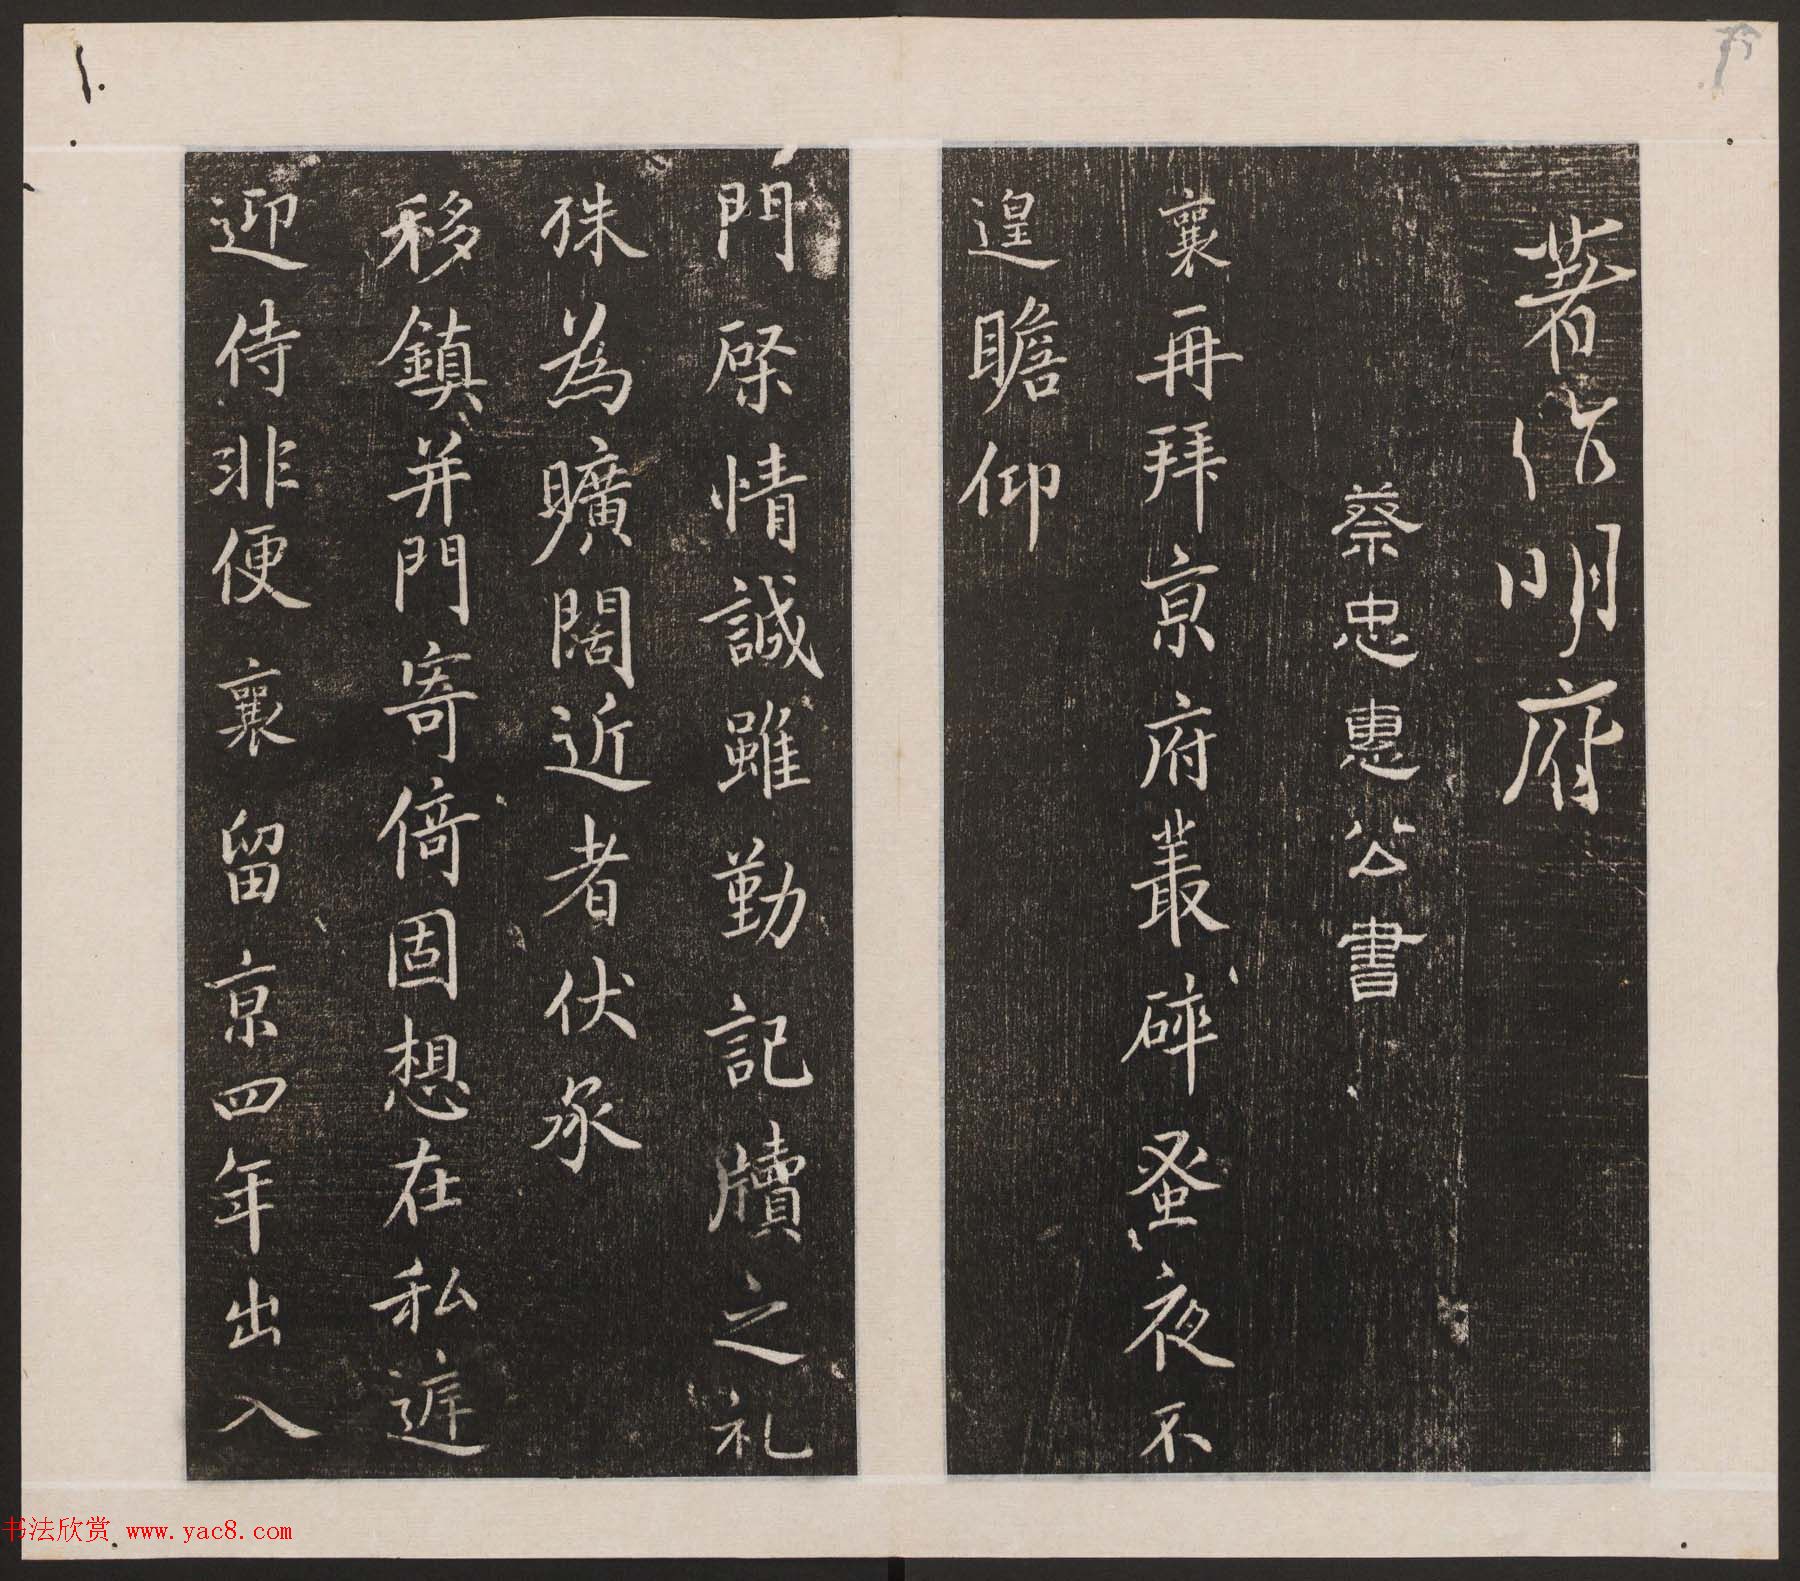 著作明府
蔡忠惠公書
襄再拜京府叢碎蚤夜不
遑瞻仰
門棨情誠雖勤記牘之礼
殊為曠闊近者伏承
移鎮并門寄倚固想在私遽
迎侍非便襄留京四年出入
书法欣赏 www.yac8.com